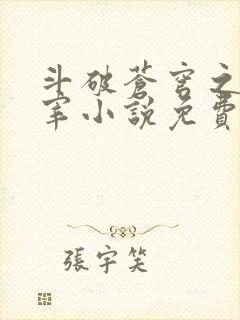 斗破蒼穹之
宰小說免費
張宇笑